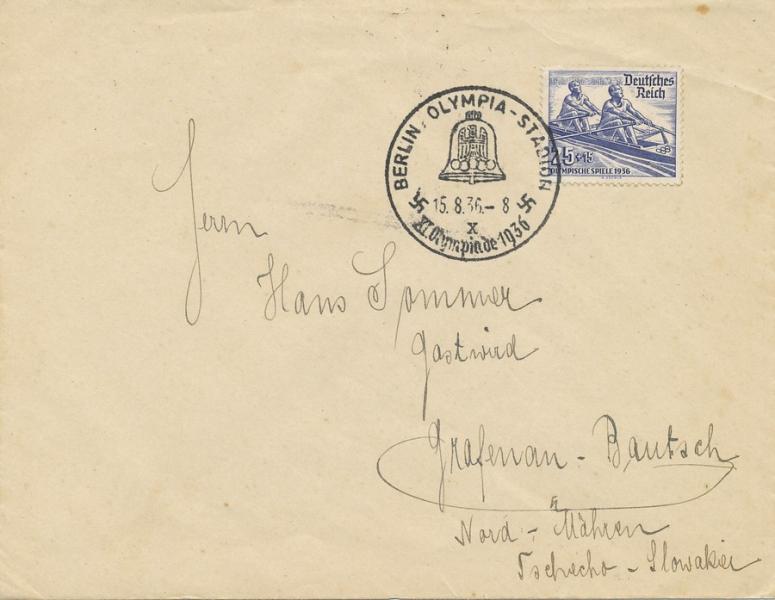 BERLIN, OLYMPIA-STADION
15.8.36.-8
x
XI. Olympiade 1936
Deutsches
Reich
25+15
OLYMPISCHE SPIELE 1936
Herrn
Hans Sommer
Gastwird
Grafenau - Bautsch
Nord - Mähren
Tschecho - Slowakei